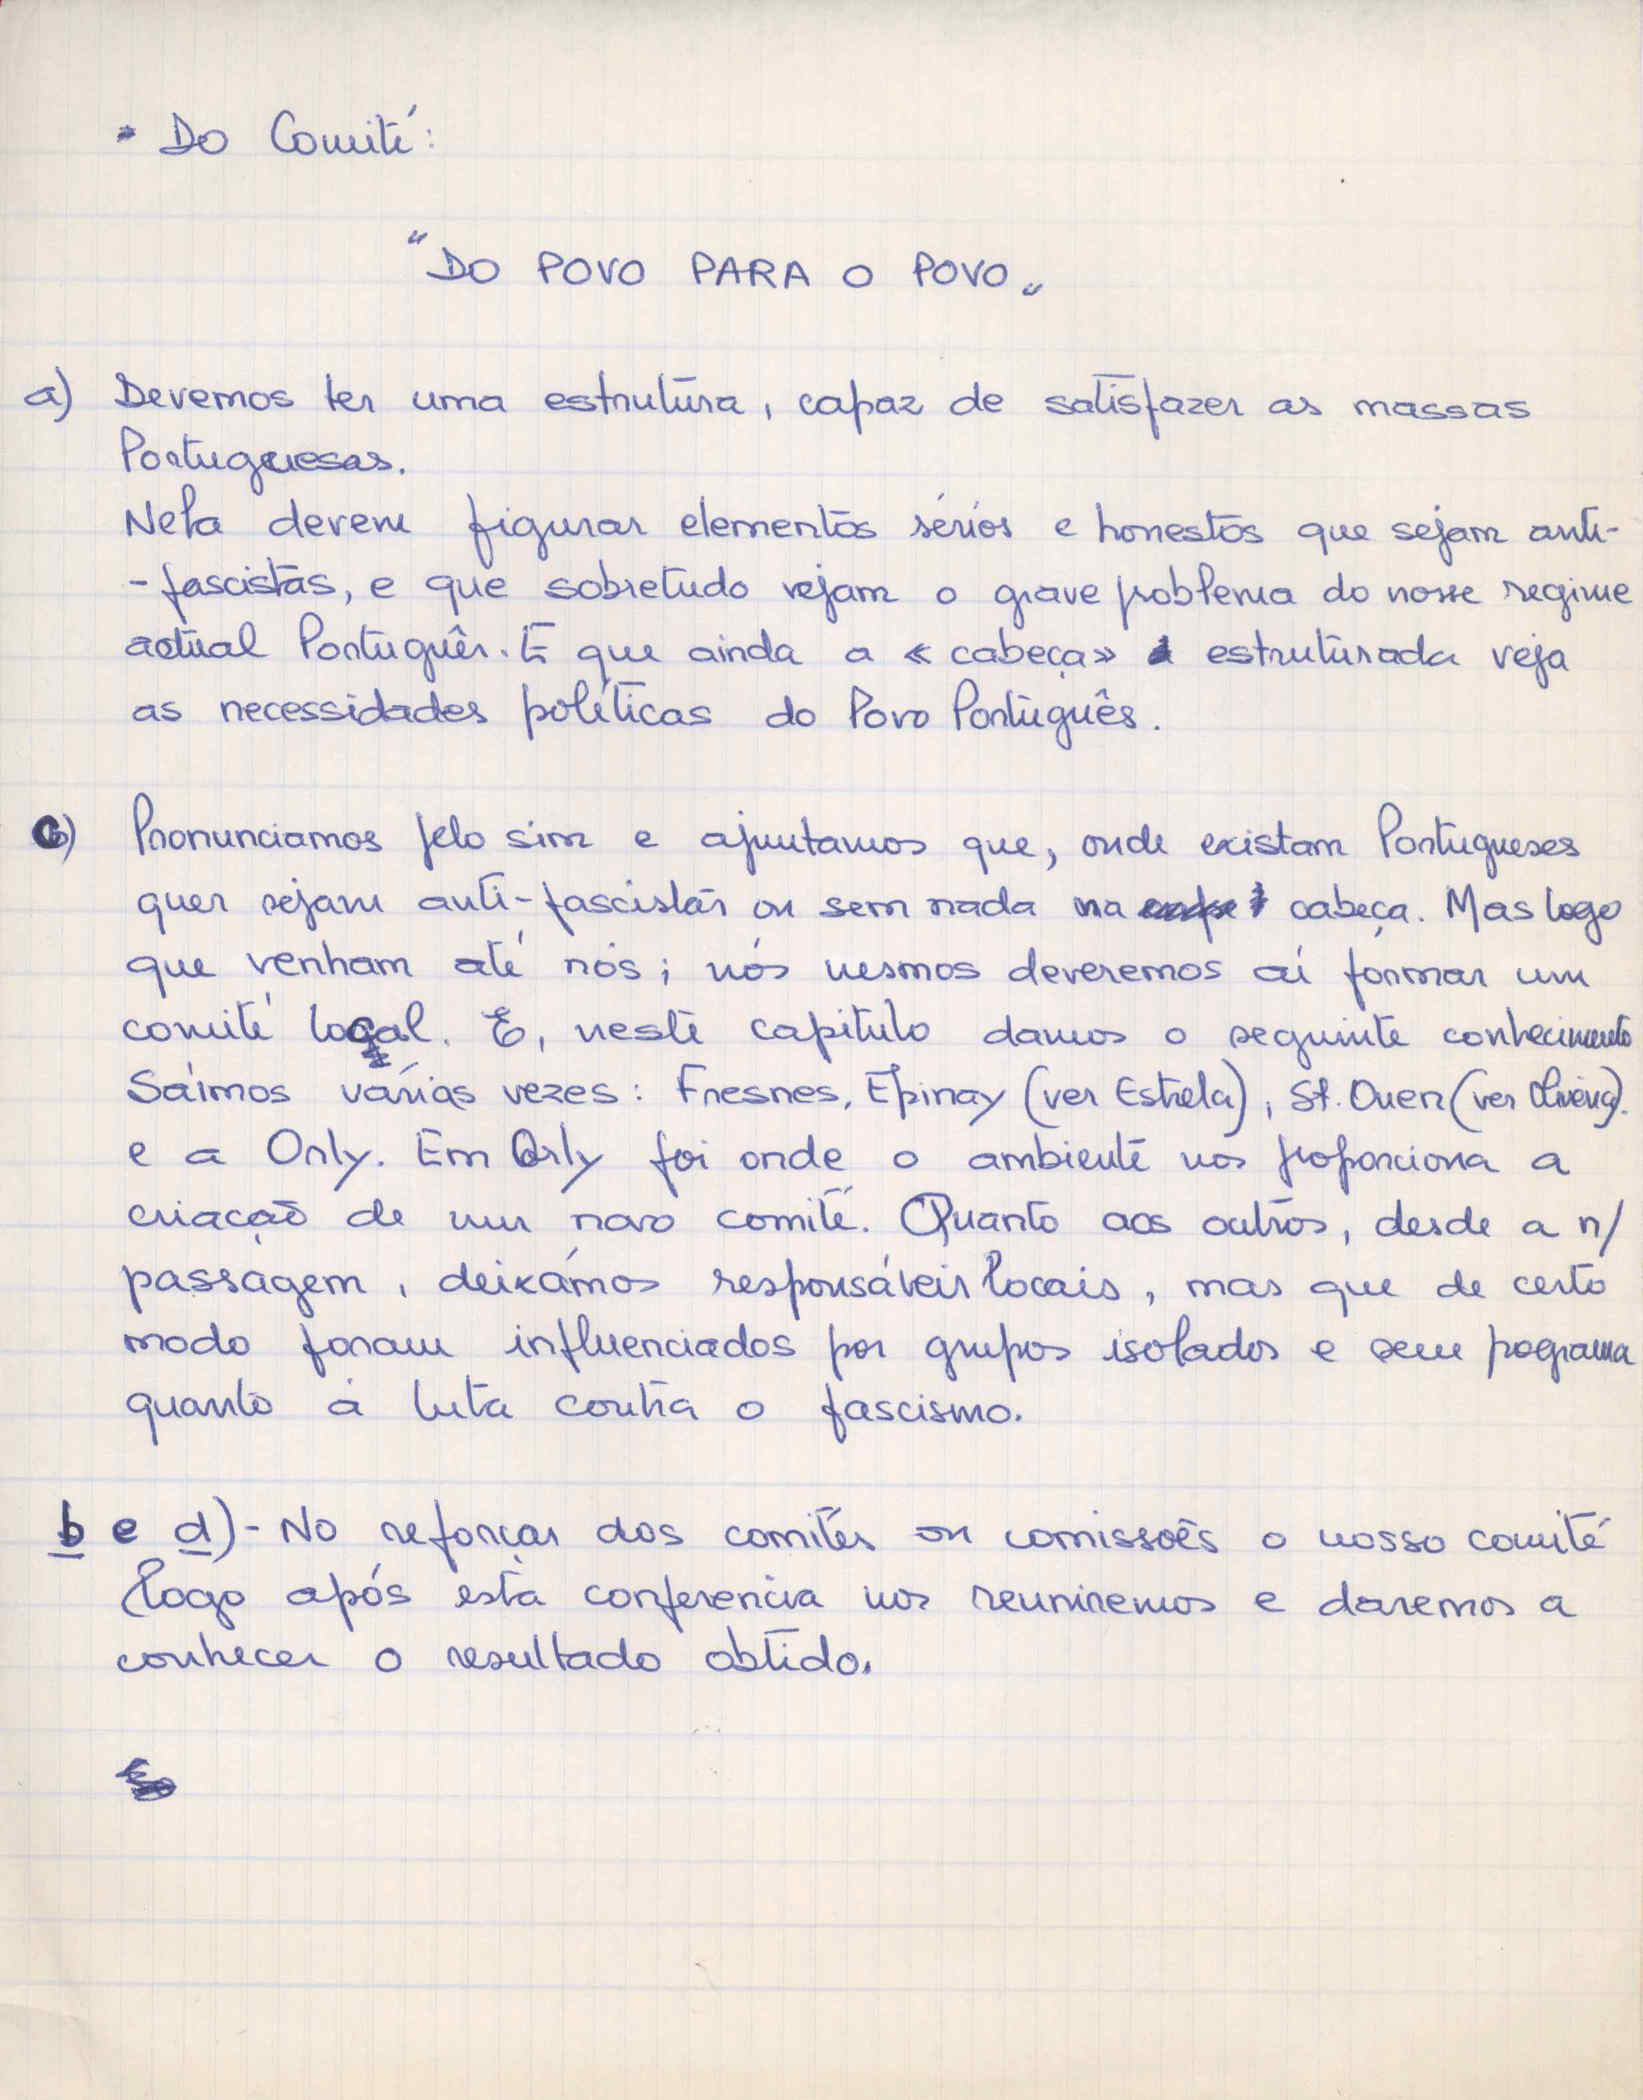 Do Comité:
"DO POVO PARA O POVO"
a) Devemos ter uma estrutura, capaz de satisfazer as massas
Portuguesas.
Nela devem figurar elementos sérios e honestos que sejam anti-
-fascistas, e que sobretudo vejam o grave problema do nosso regime
actual Português. E que ainda a « cabeça» estruturada veja
as necessidades políticas do Povo Português.
c) Pronunciamos pelo sim e ajuntamos que, onde existam Portugueses
quer sejam anti-fascistas ou sem nada na cabeça. Mas logo
que venham até nós; nós mesmos deveremos aí formar um
comité local. E, neste capitulo damos o seguinte conhecimento
Saímos várias vezes: Fresnes, Epinay (ver Estrela), St. Ouen (ver Oliveira).
e a Orly. Em Orly foi onde o ambiente nos proporciona a
criação de um novo comité. Quanto aos outros, desde a n/
passagem, deixámos responsáveis locais, mas que de certo
modo foram influenciados por grupos isolados e sem pograma
quanto à luta contra o fascismo.
b e d) - No reforçar dos comités ou comissões o nosso comité
logo após esta conferencia nos reuniremos e daremos a
conhecer o resultado obtido.